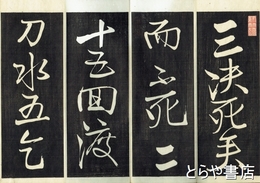 三决死矣
而不死二
十五回渡
刀水五乞
とらや書店